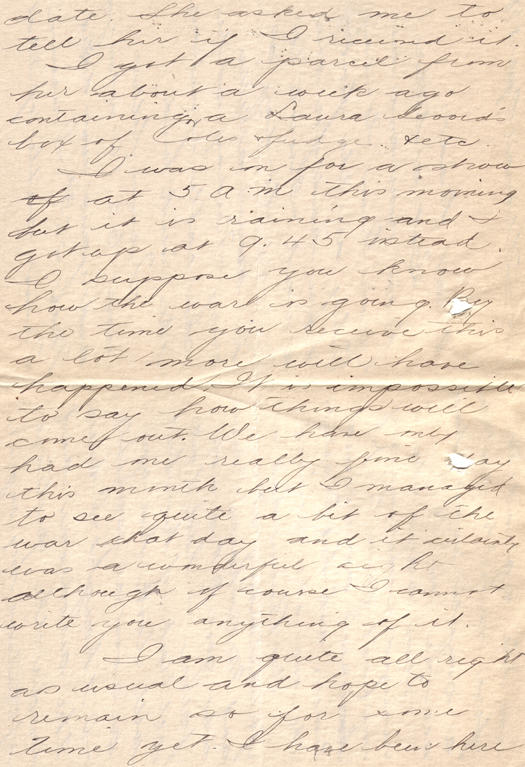 date. She asked me to
tell her if I received it.
I got a parcel from
her about a week ago
containing a Laura Secord's
box of fudge etc.
I was on for a show
at 5 A M this morning
but it is raining and I
got up at 9.45 instead.
I suppose you know
how the war is going. By
the time you receive this
a lot more will have
happened. It is impossible
to say how things will
come out. We have only
had one really fine day
this month but I managed
to see quite a bit of the
war that day and it certainly
was a wonderful sight
although of course I cannot
write you anything of it.
I am quite all right
as usual and hope to
remain so for some
time yet. I have been here